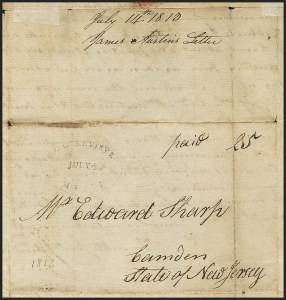 July 14th 1810
James Austin's Letter
JULY
paid 25
Mr Edward Sharp
Camden
State of New Jersey